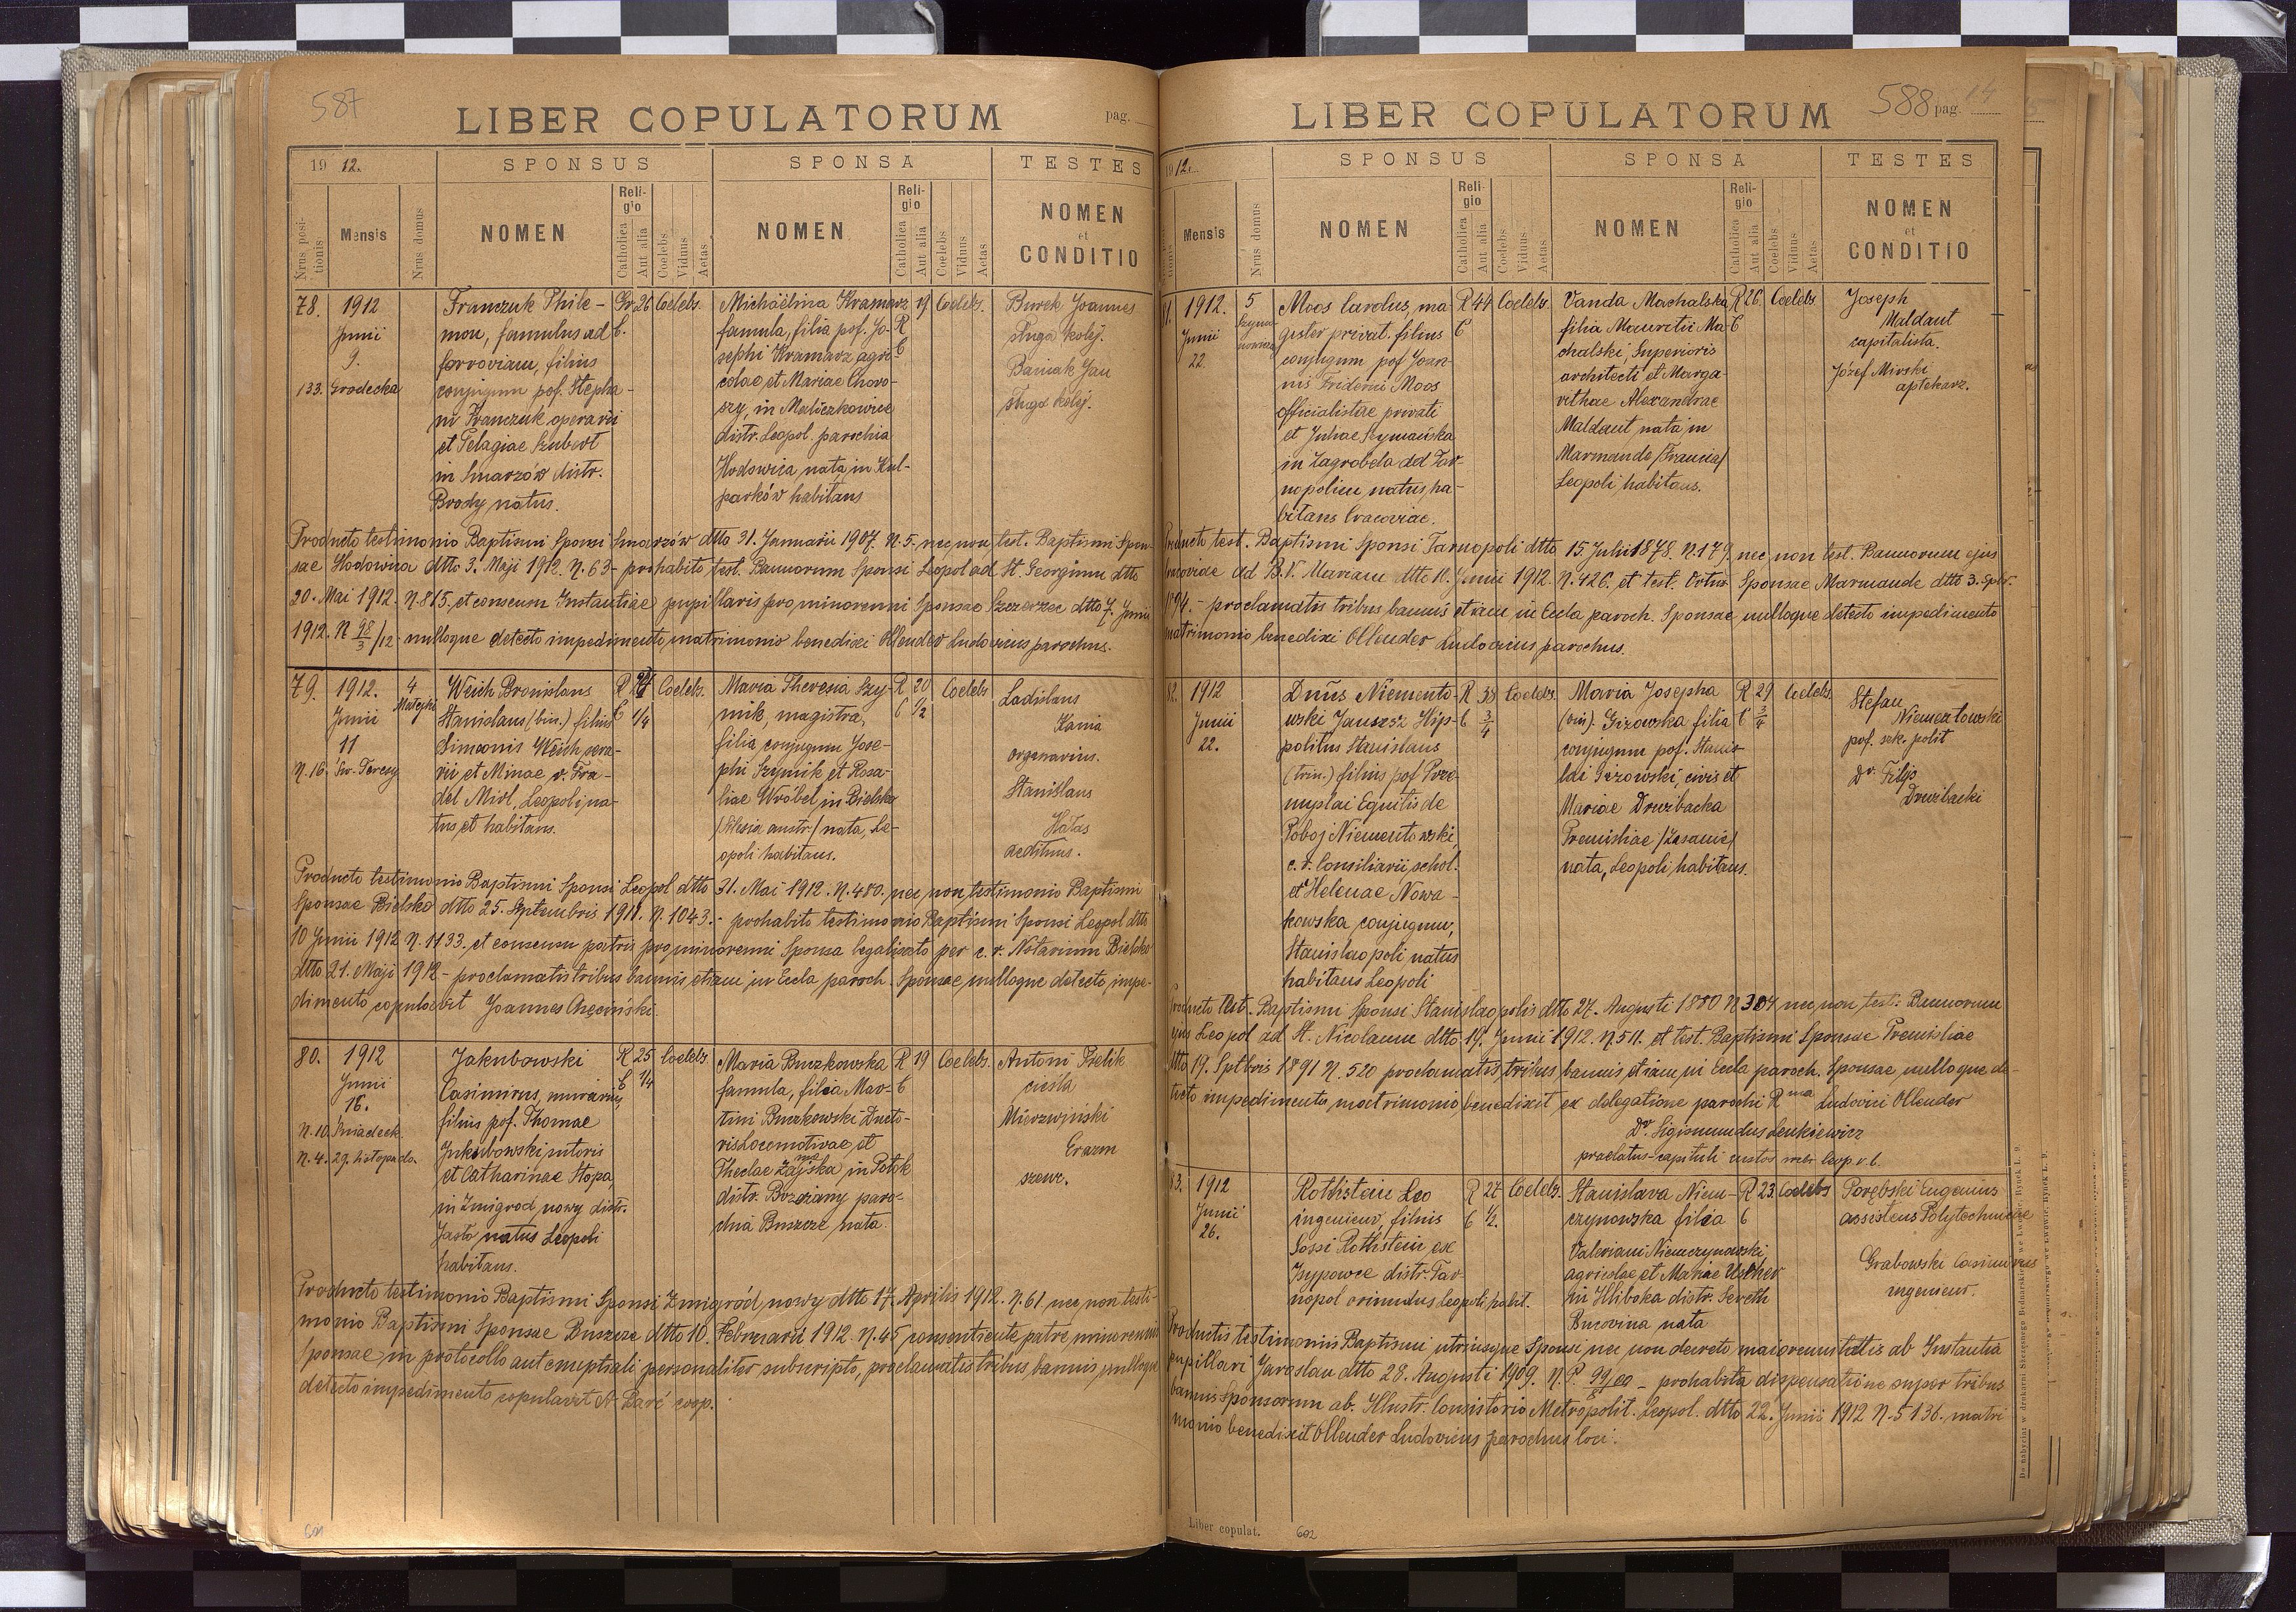 587
LIBER COPULATORUM
pag.
19 12.
SPONSUS
SPONSA
TESTES
Nrus positionis
Mensis
Nrus domus
NOMEN
Religio
Catholica
Aut alia
Coelebs
Viduus
Aetas
NOMEN
Religio
Catholica
Aut alia
Coelebs
Viduus
Aetas
NOMEN
et
CONDITIO
78.
1912
Junii
9.
133. Grodecka
Franczuk Phile-
mon, famulus ad
ferroviam, filius
conjugum pof. Stepha-
ni Franczuk operarii
et Pelagiae Szubert
in Smarzów distr.
Brody natus.
Gr. 26 Coelebs.
C.
Michaëlina Kramarz
famula, filia pof. Jo-
sephi Kramarz agri-
colae et Mariae Choro-
szy, in Maliczkowice
distr. Leopol. parochia
Hodowica nata, in Kul-
parków habitans
R
C
19 Coelebs.
Burek Joannes
sługa kolej.
Bainak Jan
sługa kolej.
Producto testimonio Baptismi Sponsi Smarzów dtto 31. Januarii 1907. N. 5. nec non test. Baptismi Spon-
sae Hodowica dtto 3. Maji 1912. N. 63 - prohabito test. Bannorum Sponsi Leopol ad St. Georgium dtto
20. Mai 1912. N. 815, et consensu Instantiae pupillaris pro minorenni Sponsae Szczerzec dtto 7. Junii
1912. N 98/3/12 - nulloque detecto impedimento, matrimonio benedixi Ollender Ludovicus parochus.
79.
1912.
Junii
11
N. 16. Św. Teresy
4
Matejki
Weich Bronislaus
Stanislaus (bin.) filius
Simeonis Weich
et Minae v. Fra-
del Misl, Leopoli na-
tus et habitans.
R 24 Coelebs.
C 1/4
Maria Theresia Szy-
mik, magistra,
filia conjugum Jose-
phi Szymik et Rosa-
liae Wróbel, in Bielsko
/Silesia austr./ nata, Le-
opoli habitans.
R 20 Coelebs
C 1/2
Ladislaus
Kania
organarius.
Stanislaus
Hałas
aedituus.
Producto testimonio Baptismi Sponsi Leopol dtto 31. Mai 1912. N. 480. nec non testimonio Baptismi
Sponsae Bielsko dtto 25. Septembris 1911. N. 1043. - prohabito testimonio Baptismi Sponsi Leopol dtto
10 Junii 1912 N. 1133, et consensu patris pro minorenni Sponsa legalisato per c. r. Notarium Bielsko
dtto 21. Maji 1912 - proclamatis tribus bannis etiam in Eccla paroch. Sponsae, nulloque detecto impe-
dimento copulavit Joannes Chęciński.
80.
1912
Junii
16.
N. 10. Śniadeck.
N. 4. 29. listopada.
Jakubowski
Casimirus, murarius,
filius pof. Thomae
Jakubowski, sutoris
et Catharinae Stopa
in Żmigrod nowy distr.
Jasło natus Leopoli
habitans.
R 25 Coelebs.
C 1/4
Maria Buczkowska
famula, filia Mar-
tini Buczkowski Ducto-
ris Locomotivae, et
Theclae in Potok
distr. Brzeżany paro-
chia Buszcze nata.
R 19 Coelebs.
C
Antoni Bielik
cieśla
Mierzwinski
Erazm
szewc.
Producto testimonio Baptismi Sponsi Żmigród nowy dtto 17. Aprilis 1912. N. 61 nec non testi-
monio Baptismi Sponsae Buszcze dtto 10. Februarii 1912. N. 45, consentiente patre minorennis
Sponsae, in protocollo antenuptiali personaliter subscripto, proclamatis tribus bannis, nulloque
detecto impedimento copulavit A. Barć coop.
601
LIBER COPULATORUM
588 pag. 14
1912.
SPONSUS
SPONSA
TESTES
Mensis
Nrus domus
NOMEN
Religio
Catholica
Aut alia
Coelebs
Viduus
Aetas
NOMEN
Religio
Catholica
Aut alia
Coelebs
Viduus
Aetas
NOMEN
et
CONDITIO
81.
1912.
Junii
22.
5
Moos Carolus, ma-
gister privat. filius
conjugum pof Joan-
nis Friderici Moos
officialistae privati
et Juliae Szymańska
in Zagrobela ad Tar-
nopolim natus, ha-
bitans Cracoviae.
R 44 Coelebs.
C
Vanda Machalska
filia Mauritii Ma-
chalski, Superioris
architecti et Marga-
rithae Alexandrae
Maldant nata in
Marmande /Francia/
Leopoli habitans.
R 26. Coelebs.
C
Joseph
Maldaut
capitalista.
Józef Mirski
aptekarz.
Producto test. Baptismi Sponsi Tarnopoli dtto 15 Julii 1878. N. 179. nec non test. Bannorum ejus
Cracoviae ad B. V. Mariam dtto 11. Junii 1912. N. 426. et test. Ortus Sponsae Marmande dtto 3. Sptbr.
1894. - proclamatis tribus bannis etiam in Eccla paroch. Sponsae nulloque detecto impedimento
matrimonio benedixi Ollender Ludovicus parochus.
82.
1912
Junii
22.
Dnus Niemento-
wski Janusz Hip-
politus Stanislaus
(trin.) filius pof Prze-
myslai Equitis de
Poboj Niementowski,
c. r. Consiliarii schol.
et Helenae Nowa-
kowska conjugum,
Stanislaopoli natus
habitans Leopoli
R 38 Coelebs.
C 3/4
Maria Josepha
(bin). Giżowska filia
conjugum pof. Stanis-
lai Giżowski, civis et
Mariae Drużbacka
Premisliae /Zasanie/
nata, Leopoli habitans.
R 29 Coelebs.
C 3/4
Stefan
Niementowski
pof. sek. polit
Dr. Filip
Drużbacki
Producto test. Baptismi Sponsi Stanislaopolis dtto 27. Augusti 1880 N 304 nec non test. Bannorum
ejus Leopol ad St. Nicolaum dtto 19. Junii 1912. N. 511. et test. Baptismi Sponsae Premisliae
dtto 19. Sptbris 1891 N. 520 proclamatis tribus bannis, etiam in Eccla paroch. Sponsae, nulloque de-
tecto impedimento, matrimonio benedixit ex delegatione parochi Rma Ludovici Ollender
Dr. Sigismundus Lenkiewicz
praelatus-capituli custos Leop. r. l.
83.
1912
Junii
26.
Rothstein Leo
ingenieur, filius
Sossi Rothstein ex
Isypowce distr. Tar-
nopol oriundus Leopoli habit.
R 27 Coelebs.
C 1/2.
Stanislava Niem-
czynowska filia
Valeriani Niemczynowski,
agricolae et Mariae Uscher
in Hliboka distr. Sereth
Bucovina nata
R 23. Coelebs
C
Porębski Eugenius
assistens Polytechnicae
Grabowski Casimirus
ingenieur.
Productis testimoniis Baptismi utriusque Sponsi nec non decreto maiorennitatis ab Instantia
pupillari Jaroslau dtto 28. Augusti 1909. N. P. 99/09 - prohabita dispensatione super tribus
bannis Sponsorum ab. Illustr. Consistorio Metropolit. Leopol. dtto 22. Junii 1912 N. 5136. matri
monio benedixit Ollender Ludovicus parochus loci.
Liber copulat.
602